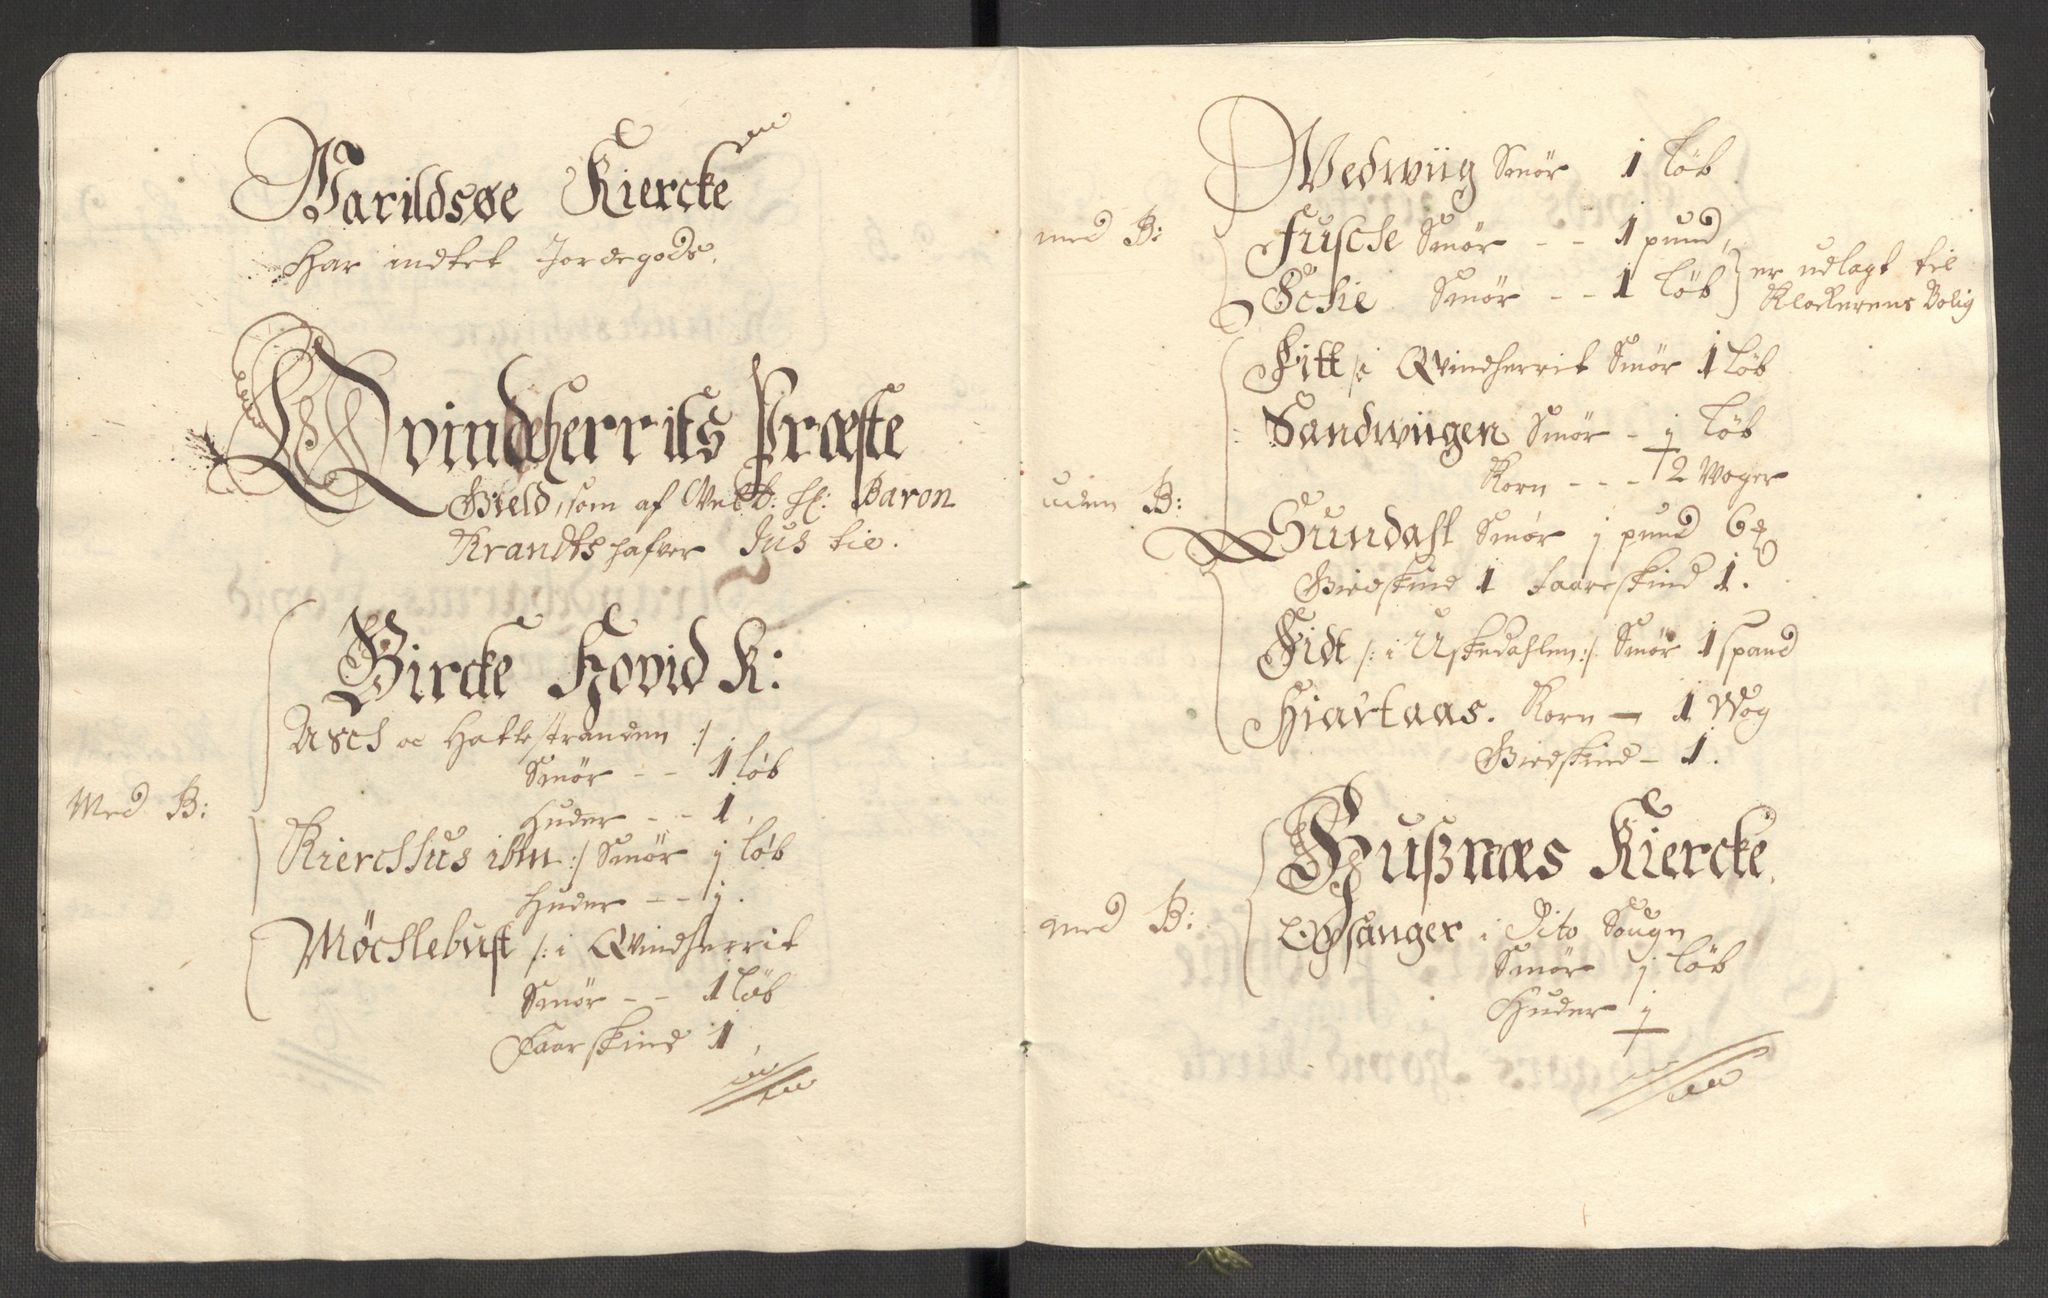 Varildsøe Kiercke
Har indtet Jordegods.
Qvindeherrits Præste
Gield, som af Velb: H: Baron
Krandts hafver Jus til.
Bircke Hovid K:
Usch oc Hattestranden :/
Smør - - 1 løb
Med B:
Huder - - 1,
Kierchhus ibm :/ Smør j løb
Huder - - j.
Möchlebust /: i Qvindherrit
Smør - - 1 løb
Faarskind 1,
Wedwiig Smør 1 Løb
med B:
Fusche Smør - - 1 pund,
Echie Smør - - 1 Løb
er udlagt til
Klockerens Bolig
Fitt /: i Qvindherrit Smør 1 Løb
Sandwiigen Smør - j Løb
Korn - - - 2 Woger
uden B:
Sundahl Smør j pund 6
Giedskind 1 faareskind 1.
Fidt /: i Uskedahlen :/ Smør 1 spand
Hiartaas. Korn - 1 Wog
Giedskind - 1.
Hußnæs Kiercke
med B:
Opsanger i Dito Sougn
Smør j Løb
Huder j